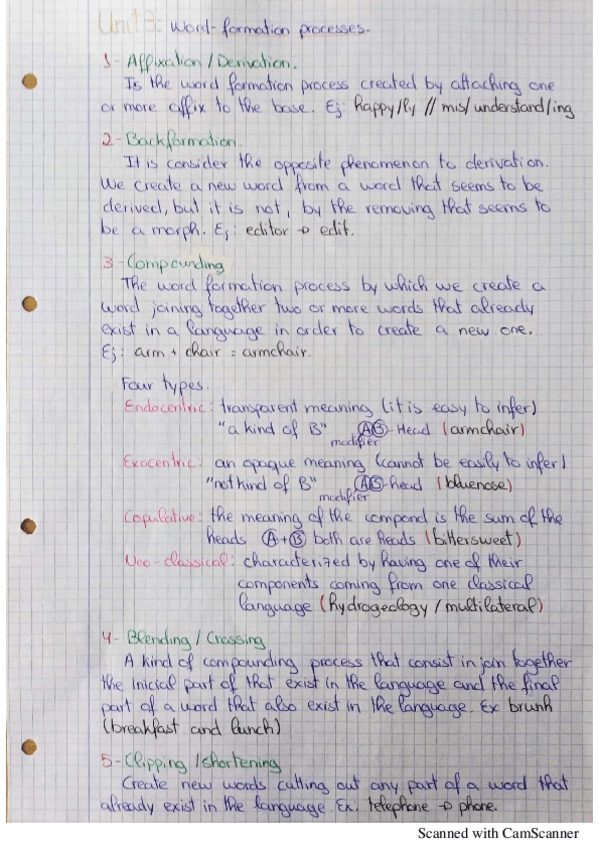 Unit 3: Word-formation processes.
1- Affixation / Derivation.
Is the word formation process created by attaching one
or more affix to the base. Ej: happy/ly // mis/understand/ing
2- Backformation
It is consider the opposite phenomenon to derivation.
We create a new word from a word that seems to be
derived, but it is not, by the removing that seems to
be a morph. Ej: editor → edit.
3- Compounding
The word formation process by which we create a
word joining together two or more words that already
exist in a language in order to create a new one.
Ej: arm + chair = armchair.
Four types.
Endocentric: transparent meaning (it is easy to infer)
"a kind of B" AB-Head (armchair)
modifier
Exocentric: an opaque meaning (cannot be easily to infer)
"not kind of B" AB-head (bluenose)
modifier
Copulative: the meaning of the compond is the sum of the
heads A+B both are heads (bittersweet)
Neo-classical: characterized by having one of their
components coming from one classical
language (hydrogeology / multilateral)
4- Blending / Crossing
A kind of compounding process that consist in join together
the inicial part of that exist in the language and the final
part of a word that also exist in the language. Ex brunh
(breakfast and lunch)
5- Clipping / shortening
Create new words cutting out any part of a word that
already exist in the language. Ex: telephone → phone.
Scanned with CamScanner